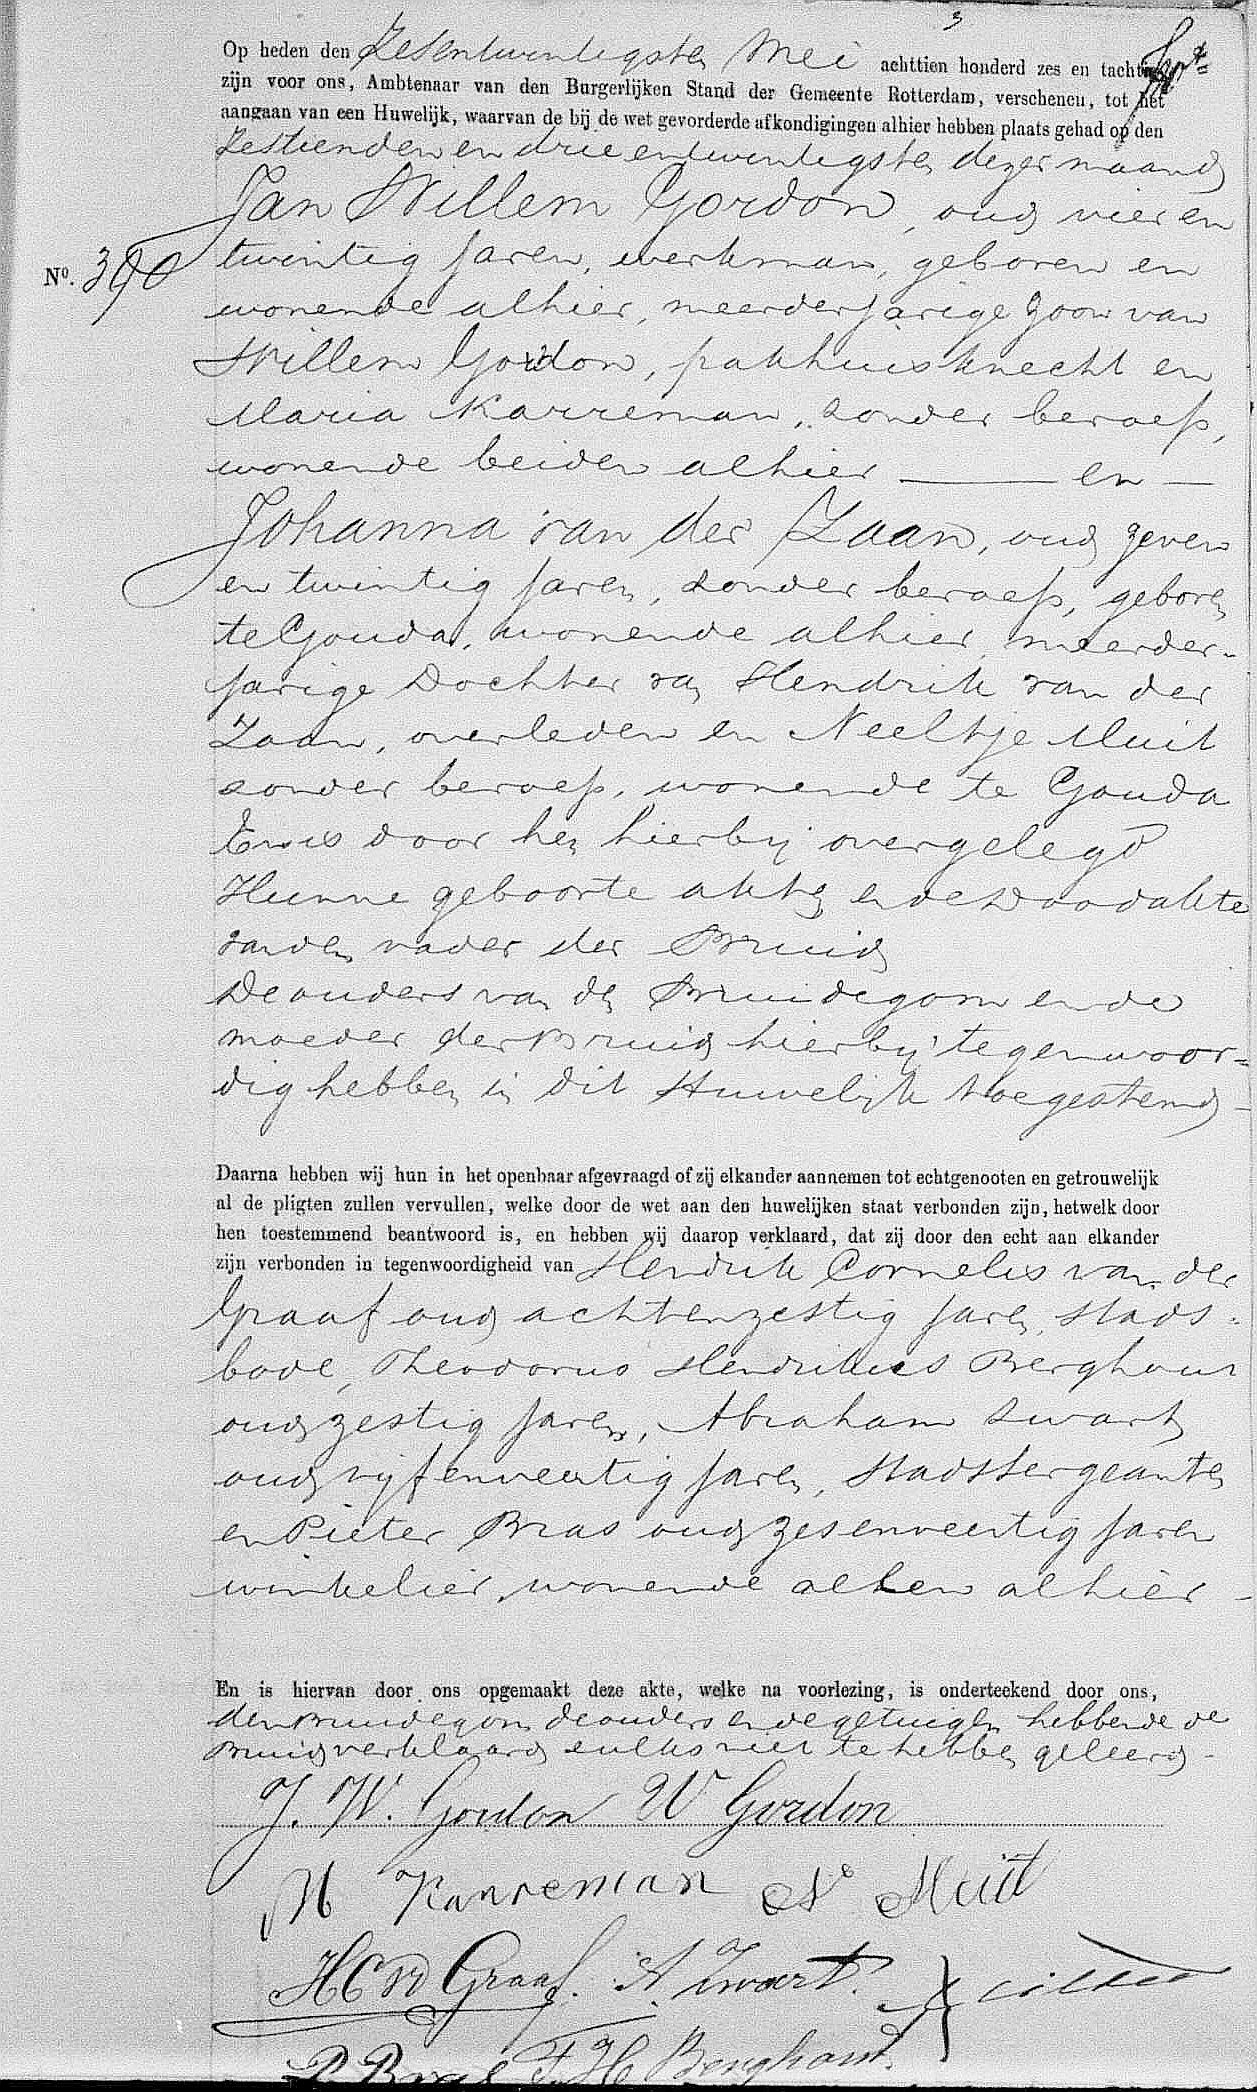 3
Op heden den Zesentwintigsten Mei achttien honderd zes en tachtig
zijn voor ons, Ambtenaar van den Burgerlijken Stand der Gemeente Rotterdam, verschenen, tot het
aangaan van een Huwelijk, waarvan de bij de wet gevorderde afkondigingen alhier hebben plaats gehad op den
Zestienden en drieentwintigsten dezer maand
Jan Willem Gordon, oud vier en
No. 390 twintig jaren, werkman, geboren en
wonende alhier, meerderjarige Zoon van
Willem Gordon, pakhuisknecht en
Maria Karreman, zonder beroep,
wonende beiden alhier ——— en —
Johanna van der Zaan, oud zeven
en twintig jaren, zonder beroep, geboren
te Gouda, wonende alhier, meerder-
jarige Dochter van Hendrik van der
Zaan, overleden en Neeltje Muit
zonder beroep, wonende te Gouda
En is door hen hierbij overgelegd
Hunne geboorte akten en de Doodakte
van den vader der Bruid
De ouders van den Bruidegom en de
moeder der Bruid hierbij tegenwoor-
dig hebben in dit Huwelijk toegestemd -
Daarna hebben wij hun in het openbaar afgevraagd of zij elkander aannemen tot echtgenooten en getrouwelijk
al de pligten zullen vervullen, welke door de wet aan den huwelijken staat verbonden zijn, hetwelk door
hen toestemmend beantwoord is, en hebben wij daarop verklaard, dat zij door den echt aan elkander
zijn verbonden in tegenwoordigheid van Hendrik Cornelis van der
Graaf oud achtenzestig jaren, stads-
bode, Theodorus Hendrikus Berghout
oud zestig jaren, Abraham Zwart
oud vijfenveertig jaren, Stadssergeanten
en Pieter Bras oud zesenveertig jaren
winkelier, wonende allen alhier -
En is hiervan door ons opgemaakt deze akte, welke na voorlezing, is onderteekend door ons,
den Bruidegom de ouders en de getuigen hebbende de
Bruid verklaard zulks niet te hebben geleerd -
J. W. Gordon W Gordon
M Karreman N Muit
HC vd Graaf. A. Zwart.
P Bras T. H Berghout.